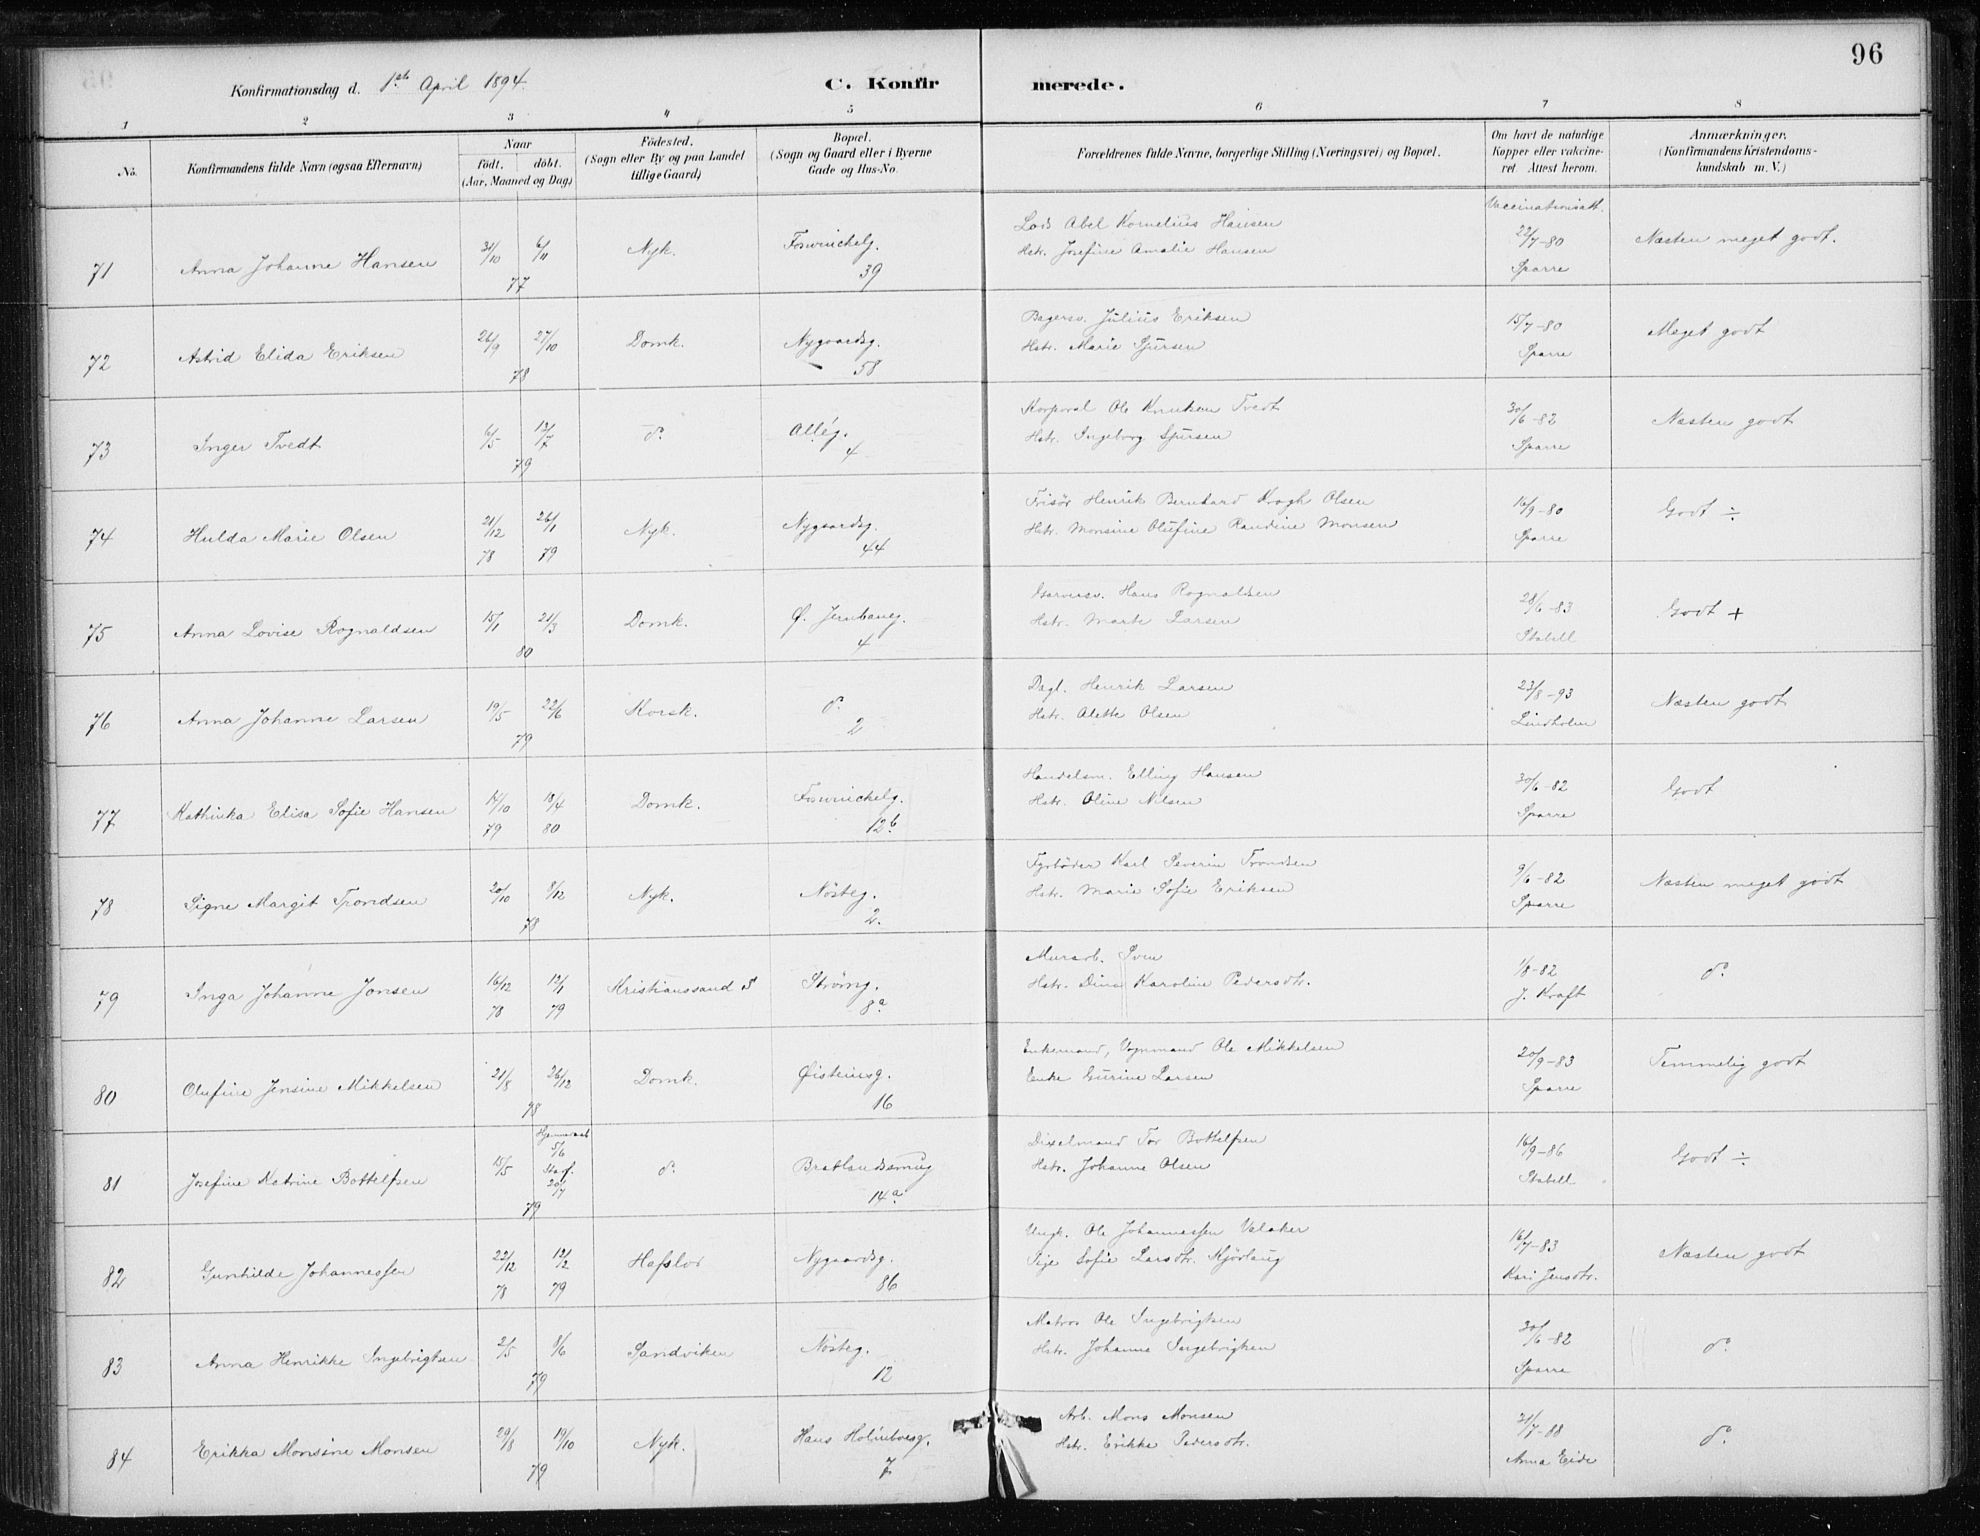 96
Konfirmationsdag d. 1ste April 1894.
C. Konfirmerede.
1 2 3 4 5 6 7 8
No.
Konfirmandens fulde Navn (ogsaa Efternavn)
Naar
født. døbt.
(Aar, Maaned og Dag)
Födested.
(Sogn eller By og paa Landet
tillige Gaard)
Bopæl.
(Sogn og Gaard eller i Byerne
Gade og Hus-No.
Forældrenes fulde Navne, borgerlige Stilling (Næringsvei) og Bopæl.
Om havt de naturlige
Kopper eller vakcine-
ret. Attest herom.
Anmærkninger.
(Konfirmandens Kristendoms-
kundskab m. V.)
71 Anna Johanne Hansen 31/10 6/11 77 Nyk. Foswinckelg. 39
Lods Abel Kornelius Hansen
Hstr. Josefine Amalie Hansen
Vaccinationsatt. 22/7-80 Sparre
Næsten meget godt.
72 Astrid Elida Eriksen 26/9 27/10 78 Domk. Nygaardsg. 58
Bagersv. Julius Eriksen
Hstr. Marie Sjursen
15/7-80 Sparre
Meget godt
73 Inger Tvedt 6/5 13/7 79 do. Allég. 4
Korporal Ole Knutsen Tvedt
Hstr. Ingeborg Sjursen
30/6-82 Sparre
Næsten godt
74 Hulda Marie Olsen 21/12 78 26/1 79 Nyk. Nygaardsg. 44
Frisör Henrik Bernhard Krogh Olsen
Hstr. Monsine Olufine Randine Monsen
16/9-80 Sparre
Godt ÷
75 Anna Lovise Rognaldsen 15/1 21/3 80 Domk. Ø. Jernbaneg. 4
Garversv. Hans Rognaldsen
Hstr. Marte Larsen
28/6-83 Stabell
Godt +
76 Anna Johanne Larsen 19/5 22/6 79 Korsk. do. 2
Dagl. Henrik Larsen
Hstr. Alette Olsen
23/8-93 Lindholm
Næsten godt
77 Kathinka Elisa Sofie Hansen 14/10 79 18/4 80 Domk. Foswinckelg. 12b
Handelsm. Elling Hansen
Hstr. Oline Nilsen
30/6-82 Sparre
Godt
78 Signe Margit Trondsen 20/10 8/12 78 Nyk. Nösteg. 2.
Fyrböder Karl Severin Trondsen
Hstr. Marie Sofie Eriksen
9/6-82 Sparre
Næsten meget godt
79 Inga Johanne Jonsen 16/12 78 12/1 79 Kristianssand S Strömg. 8a
Murarb. Sven
Hstr. Dina Karoline Pedersdtr.
1/8-82 J. Kraft
do.
80 Olufine Jensine Mikkelsen 21/8 26/12 78 Domk. Øisteinsg. 16
Enkemand, Vognmand Ole Mikkelsen
Enke Gurine Larsen
20/9-83 Sparre
Temmelig godt
81 Josefine Katrine Bottelsen 15/5 Hjemmedøbt 5/6 Stadf. 20/7 79 do. Bratlandssmug 14a
Dixelmand Tor Bottelsen
Hstr. Johanne Olsen
16/9-86 Stabell
Godt ÷
82 Gunhilde Johannessen 22/12 78 12/2 79 Hafslo Nygaardsg. 86
Ungk. Ole Johannessen Valaker
Pige Sofie Larsdtr. Kjörlaug
16/7-83 Kari Jensdtr.
Næsten godt
83 Anna Henrikke Ingebrigtsen 2/5 8/6 79 Sandviken Nösteg. 12
Matros Ole Ingebrigtsen
Hstr. Johanna Ingebrigtsen
30/6-82 Sparre
do.
84 Erikka Monsine Monsen 29/8 19/10 79 Nyk. Hans Holmboesg. 7
Arb. Mons Monsen
Hstr. Erikke Pedersdtr.
21/7-88 Anna Eide
do.